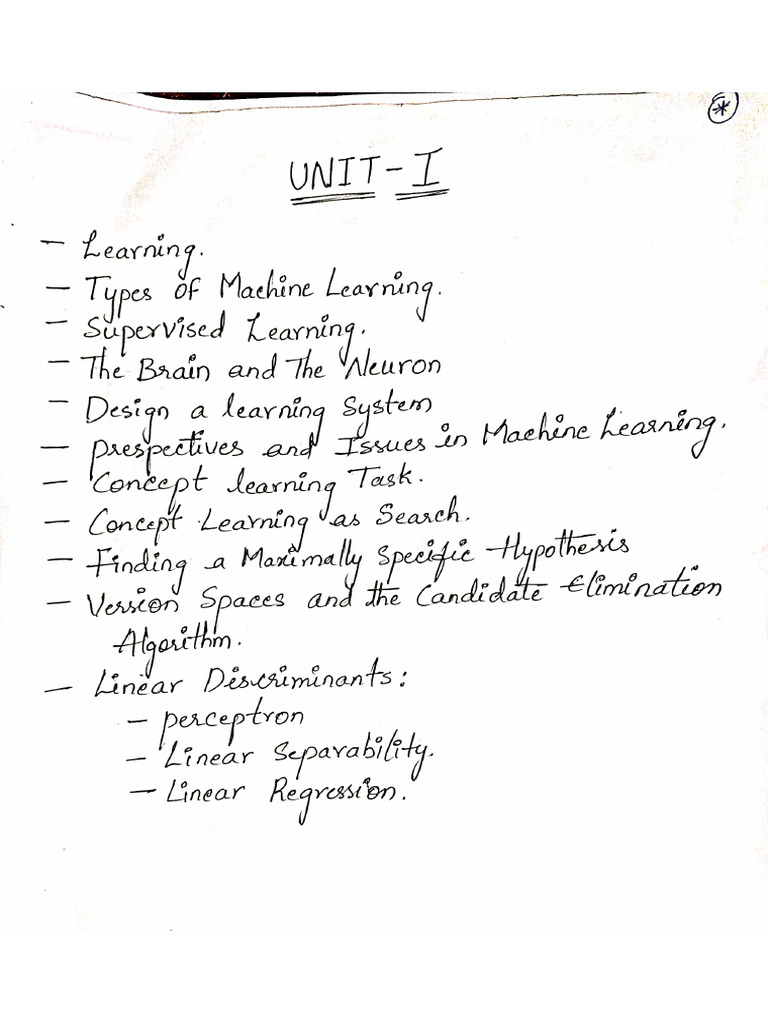 *
UNIT-I
- Learning.
- Types of Machine Learning.
- Supervised Learning.
- The Brain and The Neuron
- Design a learning System
- prespectives and Issues in Machine Learning.
- Concept learning Task.
- Concept Learning as Search.
- Finding a Maximally Specific Hypothesis
- Version Spaces and the Candidate Elimination
Algorithm.
- Linear Discriminants:
- perceptron
- Linear Separability.
- Linear Regression.